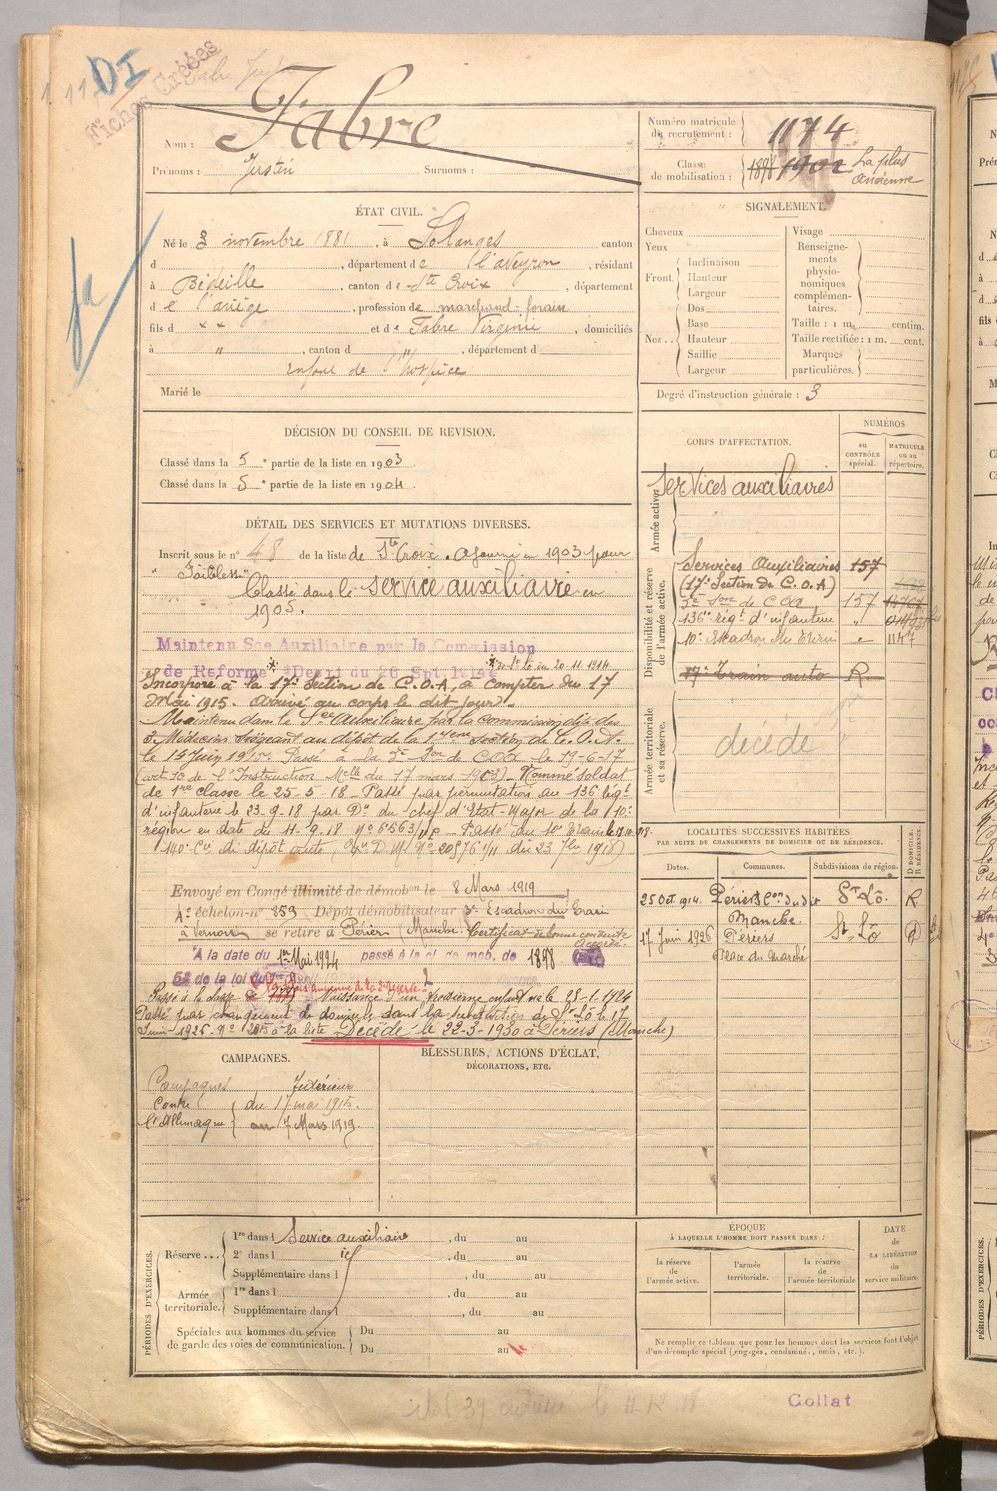 DI
Fiches Créées
Fabre
Nom :
Prénoms : Justin Surnoms :
Numéro matricule de recrutement : 1174
Classe de mobilisation : 1898 1902 La plus ancienne
ÉTAT CIVIL.
Né le 3 novembre 1881, à Solanges canton
d , département de l'aveyron, résidant
à Bédeille, canton de Ste Croix, département
d e l'ariège, profession de marchand-forain
fils d x x et de Fabre Virginie, domiciliés
à " , canton d " , département d
enfant de l'hospice
Marié le
SIGNALEMENT.
Cheveux
Yeux
Front. Inclinaison
Hauteur
Largeur
Nez .. Dos
Base
Hauteur
Saillie
Largeur
Visage
Renseignements physionomiques complémentaires.
Taille : 1 m. centim.
Taille rectifiée : 1 m. cent.
Marques particulières.
Degré d'instruction générale : 3
DÉCISION DU CONSEIL DE REVISION.
Classé dans la 5e partie de la liste en 1903
Classé dans la 5e partie de la liste en 1904
DÉTAIL DES SERVICES ET MUTATIONS DIVERSES.
Inscrit sous le n° 48 de la liste de Ste Croix. Ajourné en 1903 pour
"Faiblesse"
Classé dans le service auxiliaire en
1905.
Maintenu Sce Auxiliaire par la Commission
de Reforme * Décrt du 26 Spt. 1914
Incorporé à la 17e Section de C.O.A, à compter du 17
Mai 1915. Arrivé au corps le dit jour.
Maintenu dans le Sce Auxiliaire par la Commission dite des
3 Médecins siégeant au dépôt de la 17eme section de C.O.A.
le 15 juin 1915. Passé à la 3e Son de COA le 19-6-17
(art 30 de l'Instruction Melle du 17 mars 1903). Nommé soldat
de 1re classe le 25-5-18 Passé par permutation au 136 régt
d'infanterie le 23-9-18 par Dn du chef d'Etat-Major de la 10e
région en date du 11-9-18 N° 6563
Envoyé en Congé illimité de démobon le 8 Mars 1919
4e échelon-n° 859 Dépôt démobilisateur 3e Escadron du Train
à Vernon se retire à Périers (Manche. Certificat de bonne conduite
accordé.
A la date du 1er Mai 1924 passé à la cl. de mob. de 1898
52 de la loi du
Passé à la classe Naissance d'un troisième enfant né le 28-1-1924
la plus ancienne de la 2e réserve
Passé par changement de domicile dans la subdivision de St Lô le 17
Juin-1926- Décédé le 22-3-1930 à Périers (Manche)
CORPS D'AFFECTATION.
NUMÉROS
AU CONTRÔLE spécial.
MATRICULE ou au répertoire.
Armée active.
Services auxiliaires
Disponibilité et réserve de l'armée active.
Services Auxiliaires 157
(17e Section de C.O.A)
3e Son de COA 157
136e régt d'infanterie "
10e Escadron du Train "
17e Train auto R
Armée territoriale et sa réserve.
décédé
LOCALITÉS SUCCESSIVES HABITÉES
PAR SUITE DE CHANGEMENTS DE DOMICILE OU DE RÉSIDENCE.
Dates. Communes. Subdivisions de région. D DOMICILE. R RÉSIDENCE.
25 Oct. 1914. Périers Con du dit St Lô. R
Manche.
17 Juin 1926 Périers St Lô D
Place du Marché
CAMPAGNES.
Campagnes Intérieur
Contre du 17 mai 1915.
l'Allemagne au 7 Mars 1919.
BLESSURES, ACTIONS D'ÉCLAT,
DÉCORATIONS, ETC.
PÉRIODES D'EXERCICES.
Réserve ... 1re dans l Service auxiliaire , du au
2e dans l , du au
Supplémentaire dans l , du au
Armée territoriale. 1re dans l , du au
Supplémentaire dans l , du au
Spéciales aux hommes du service de garde des voies de communication. Du au
Du au
ÉPOQUE
À LAQUELLE L'HOMME DOIT PASSER DANS :
la réserve de l'armée active.
l'armée territoriale.
la réserve de l'armée territoriale
DATE DE LA LIBÉRATION du service militaire.
Ne remplir ce tableau que pour les hommes dont les services font l'objet
d'un décompte spécial (engagés, condamné, omis, etc.).
Collat